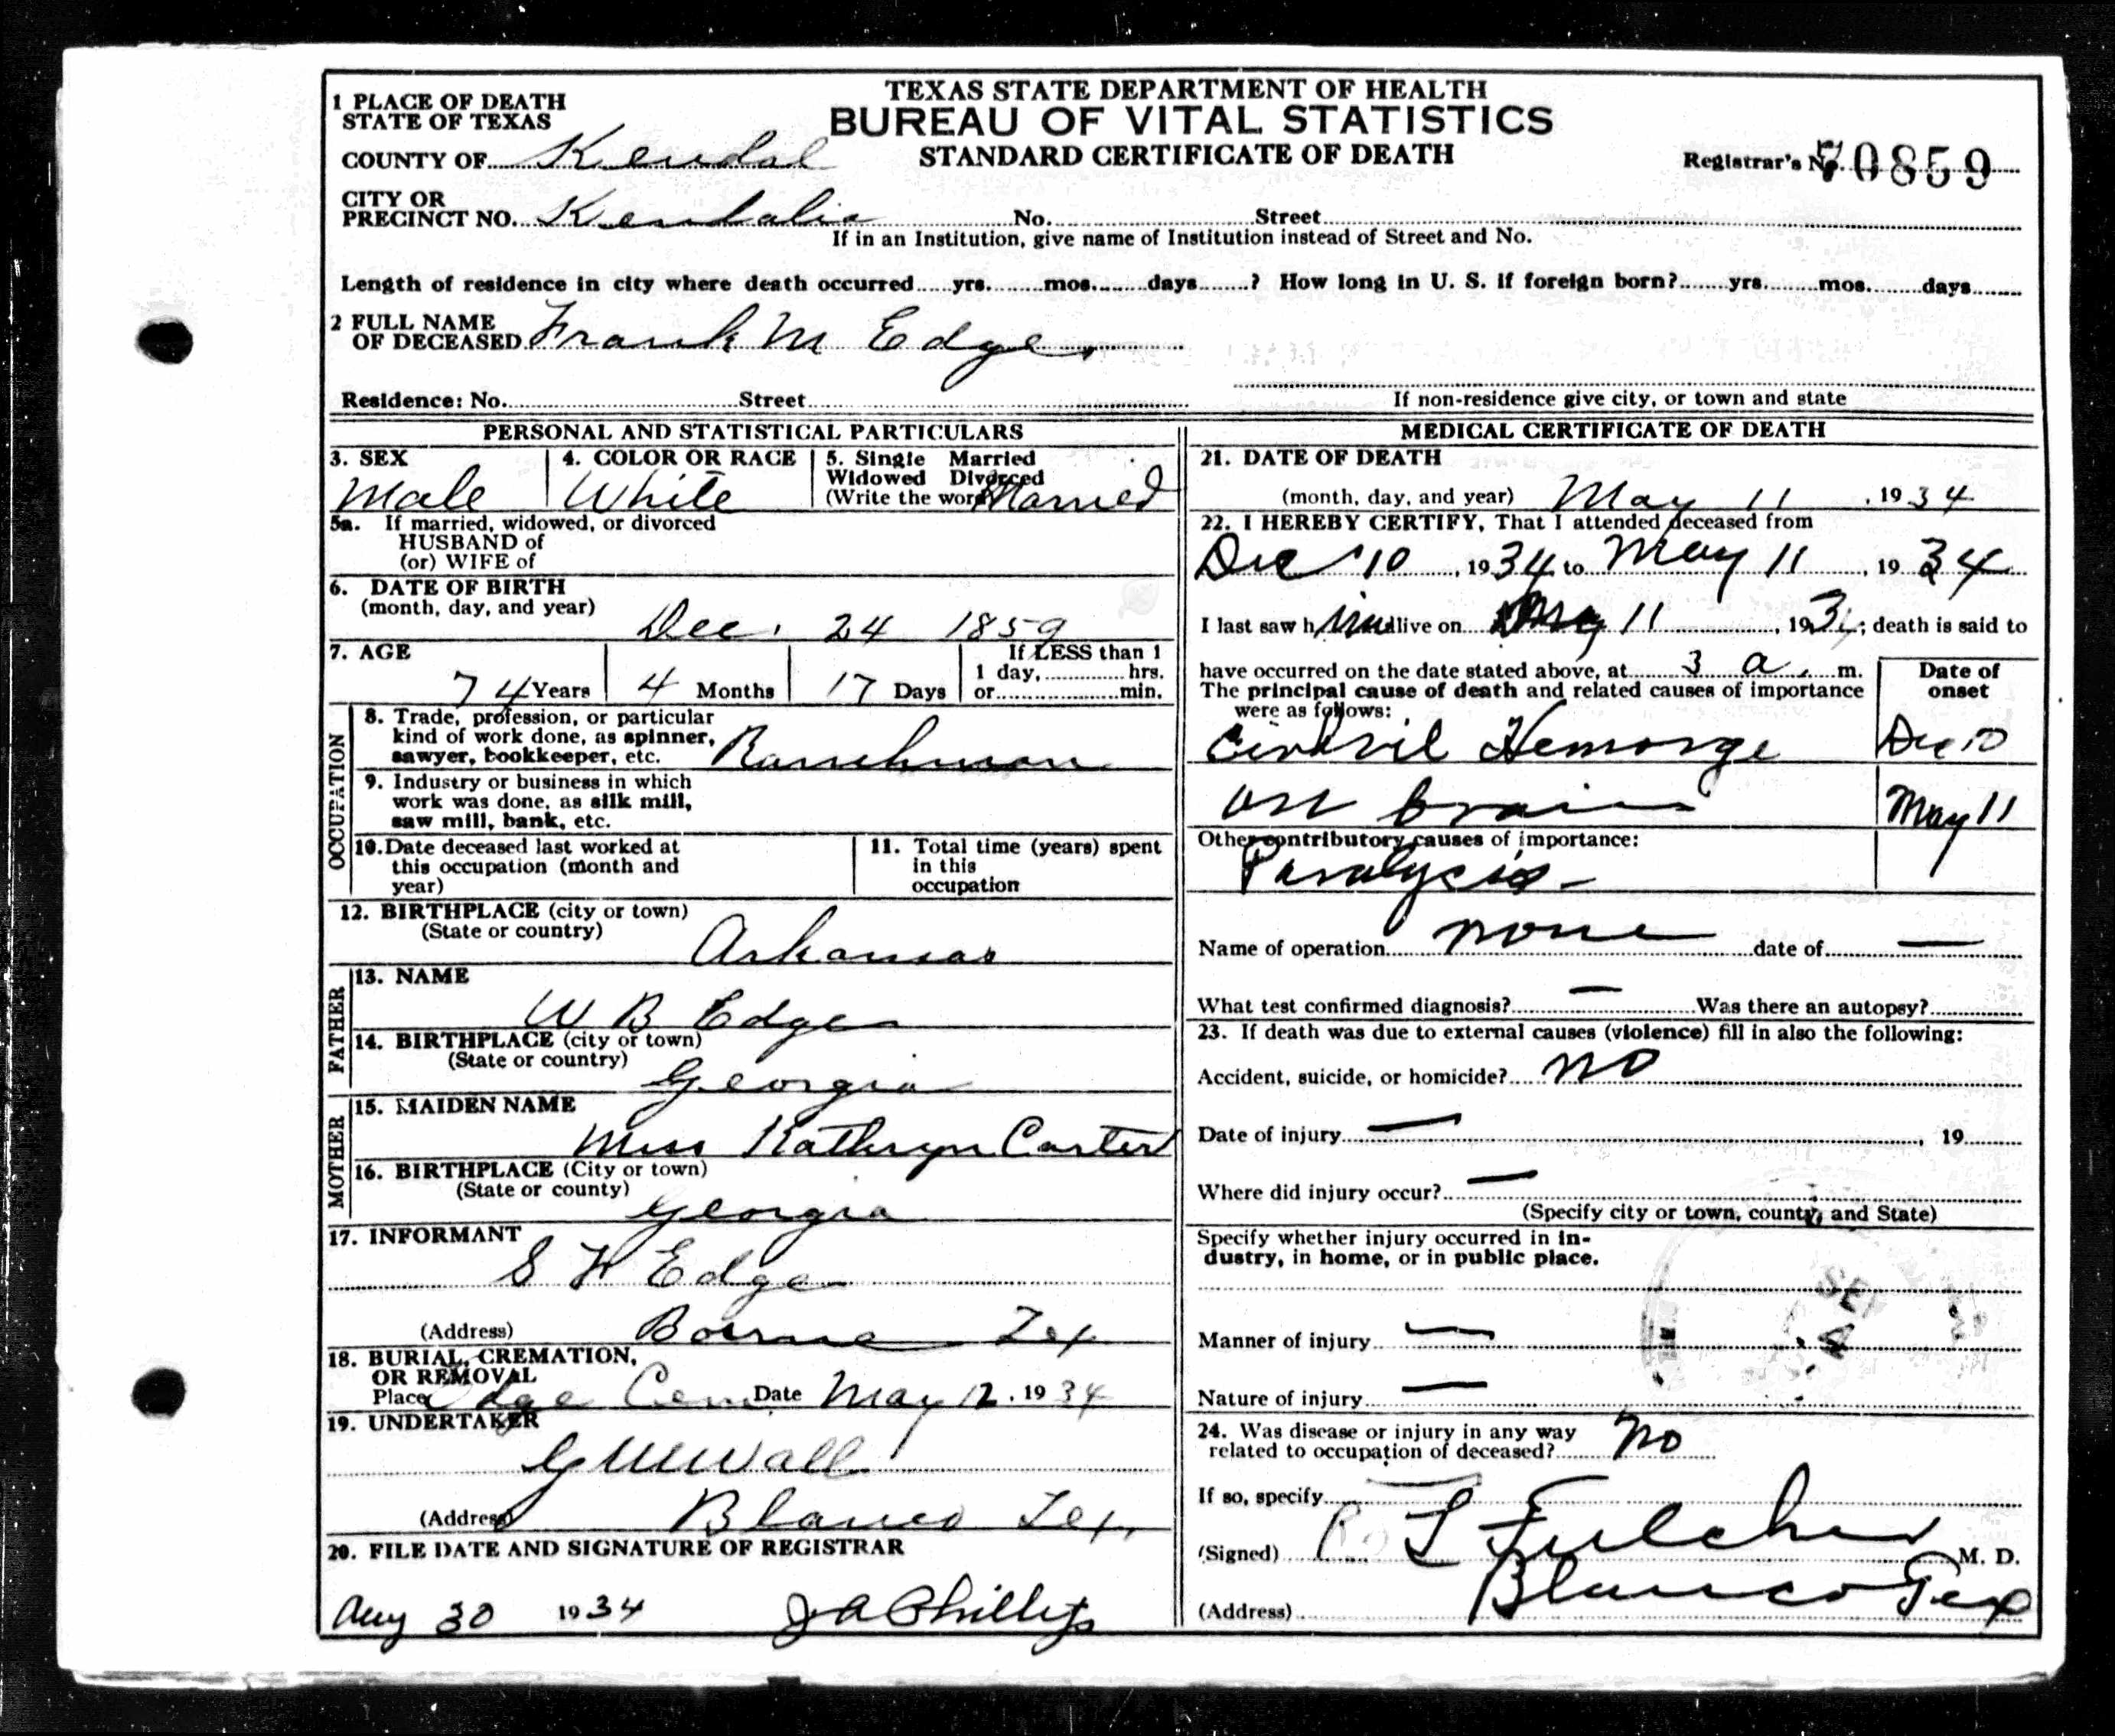 TEXAS STATE DEPARTMENT OF HEALTH
BUREAU OF VITAL STATISTICS
STANDARD CERTIFICATE OF DEATH
Registrar's No. 70859
1 PLACE OF DEATH
STATE OF TEXAS
COUNTY OF Kendal
CITY OR
PRECINCT NO. Kendalia No. Street
If in an Institution, give name of Institution instead of Street and No.
Length of residence in city where death occurred yrs. mos. days ? How long in U. S. if foreign born? yrs. mos. days
2 FULL NAME
OF DECEASED Frank M Edge
Residence: No. Street
If non-residence give city, or town and state
PERSONAL AND STATISTICAL PARTICULARS
3. SEX
Male
4. COLOR OR RACE
White
5. Single Married
Widowed Divorced
(Write the word) Married
5a. If married, widowed, or divorced
HUSBAND of
(or) WIFE of
6. DATE OF BIRTH
(month, day, and year) Dec. 24 1859
7. AGE
74 Years 4 Months 17 Days
If LESS than 1
1 day, hrs.
or min.
OCCUPATION
8. Trade, profession, or particular
kind of work done, as spinner,
sawyer, bookkeeper, etc. Ranchman
9. Industry or business in which
work was done, as silk mill,
saw mill, bank, etc.
10. Date deceased last worked at
this occupation (month and
year)
11. Total time (years) spent
in this
occupation
12. BIRTHPLACE (city or town)
(State or country) Arkansas
FATHER
13. NAME
W B Edge
14. BIRTHPLACE (city or town)
(State or country) Georgia
MOTHER
15. MAIDEN NAME
Miss Kathryn Carter
16. BIRTHPLACE (City or town)
(State or county) Georgia
17. INFORMANT
S H Edge
(Address) Boerne Tex
18. BURIAL, CREMATION,
OR REMOVAL
Place Edge Cem Date May 12, 1934
19. UNDERTAKER
G M Wall
(Address) Blanco Tex,
20. FILE DATE AND SIGNATURE OF REGISTRAR
Aug 30 1934 J A Phillips
MEDICAL CERTIFICATE OF DEATH
21. DATE OF DEATH
(month, day, and year) May 11, 1934
22. I HEREBY CERTIFY, That I attended deceased from
Dec 10, 1934 to May 11, 1934
I last saw him alive on May 11, 193 ; death is said to
have occurred on the date stated above, at 3 a. m.
The principal cause of death and related causes of importance
were as follows:
Date of
onset
Hemorge Dec 10
on brain May 11
Other contributory causes of importance:
Paralysis
Name of operation none date of —
What test confirmed diagnosis? — Was there an autopsy?
23. If death was due to external causes (violence) fill in also the following:
Accident, suicide, or homicide? no
Date of injury —, 19
Where did injury occur? —
(Specify city or town, county, and State)
Specify whether injury occurred in in-
dustry, in home, or in public place.
Manner of injury —
Nature of injury —
24. Was disease or injury in any way
related to occupation of deceased? no
If so, specify —
(Signed) L Fulcher M. D.
(Address) Blanco Tex